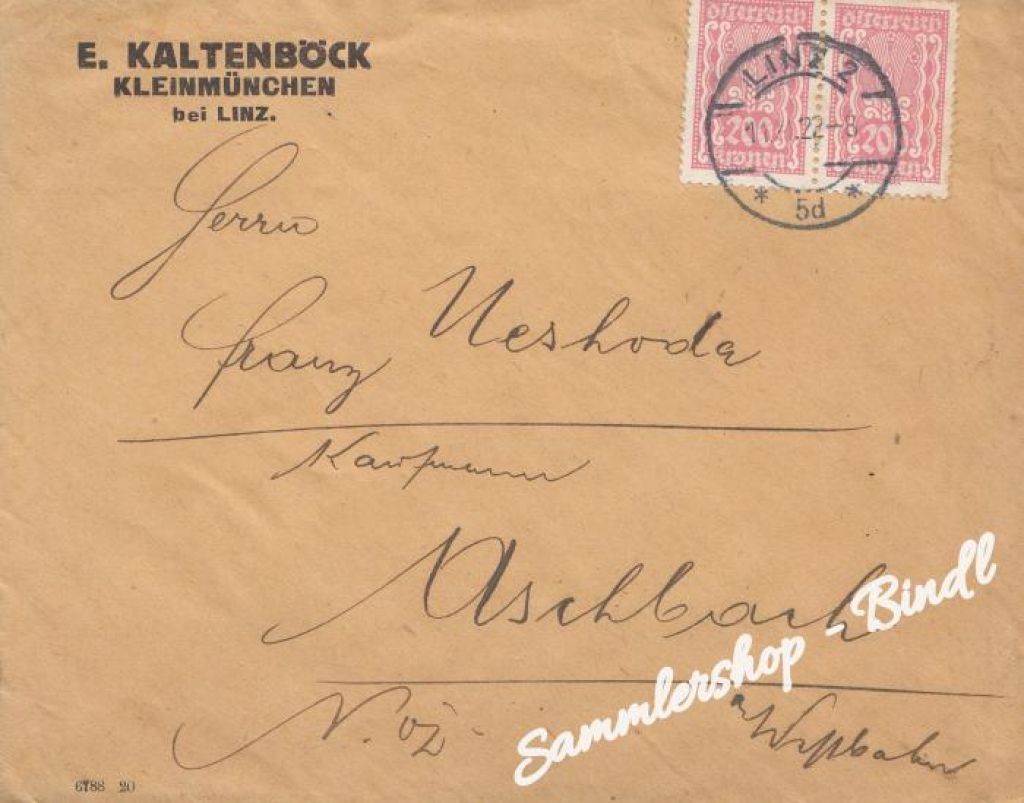 E. KALTENBÖCK
KLEINMÜNCHEN
bei LINZ.
österreich österreich
LINZ 2
22-8
200 20
Kronen
* 5d *
Herrn
Franz Neshoda
Kaufmann
Aschbach
N. Oe.
a/ Westbahn
Sammlershop - Bindl
6788 20